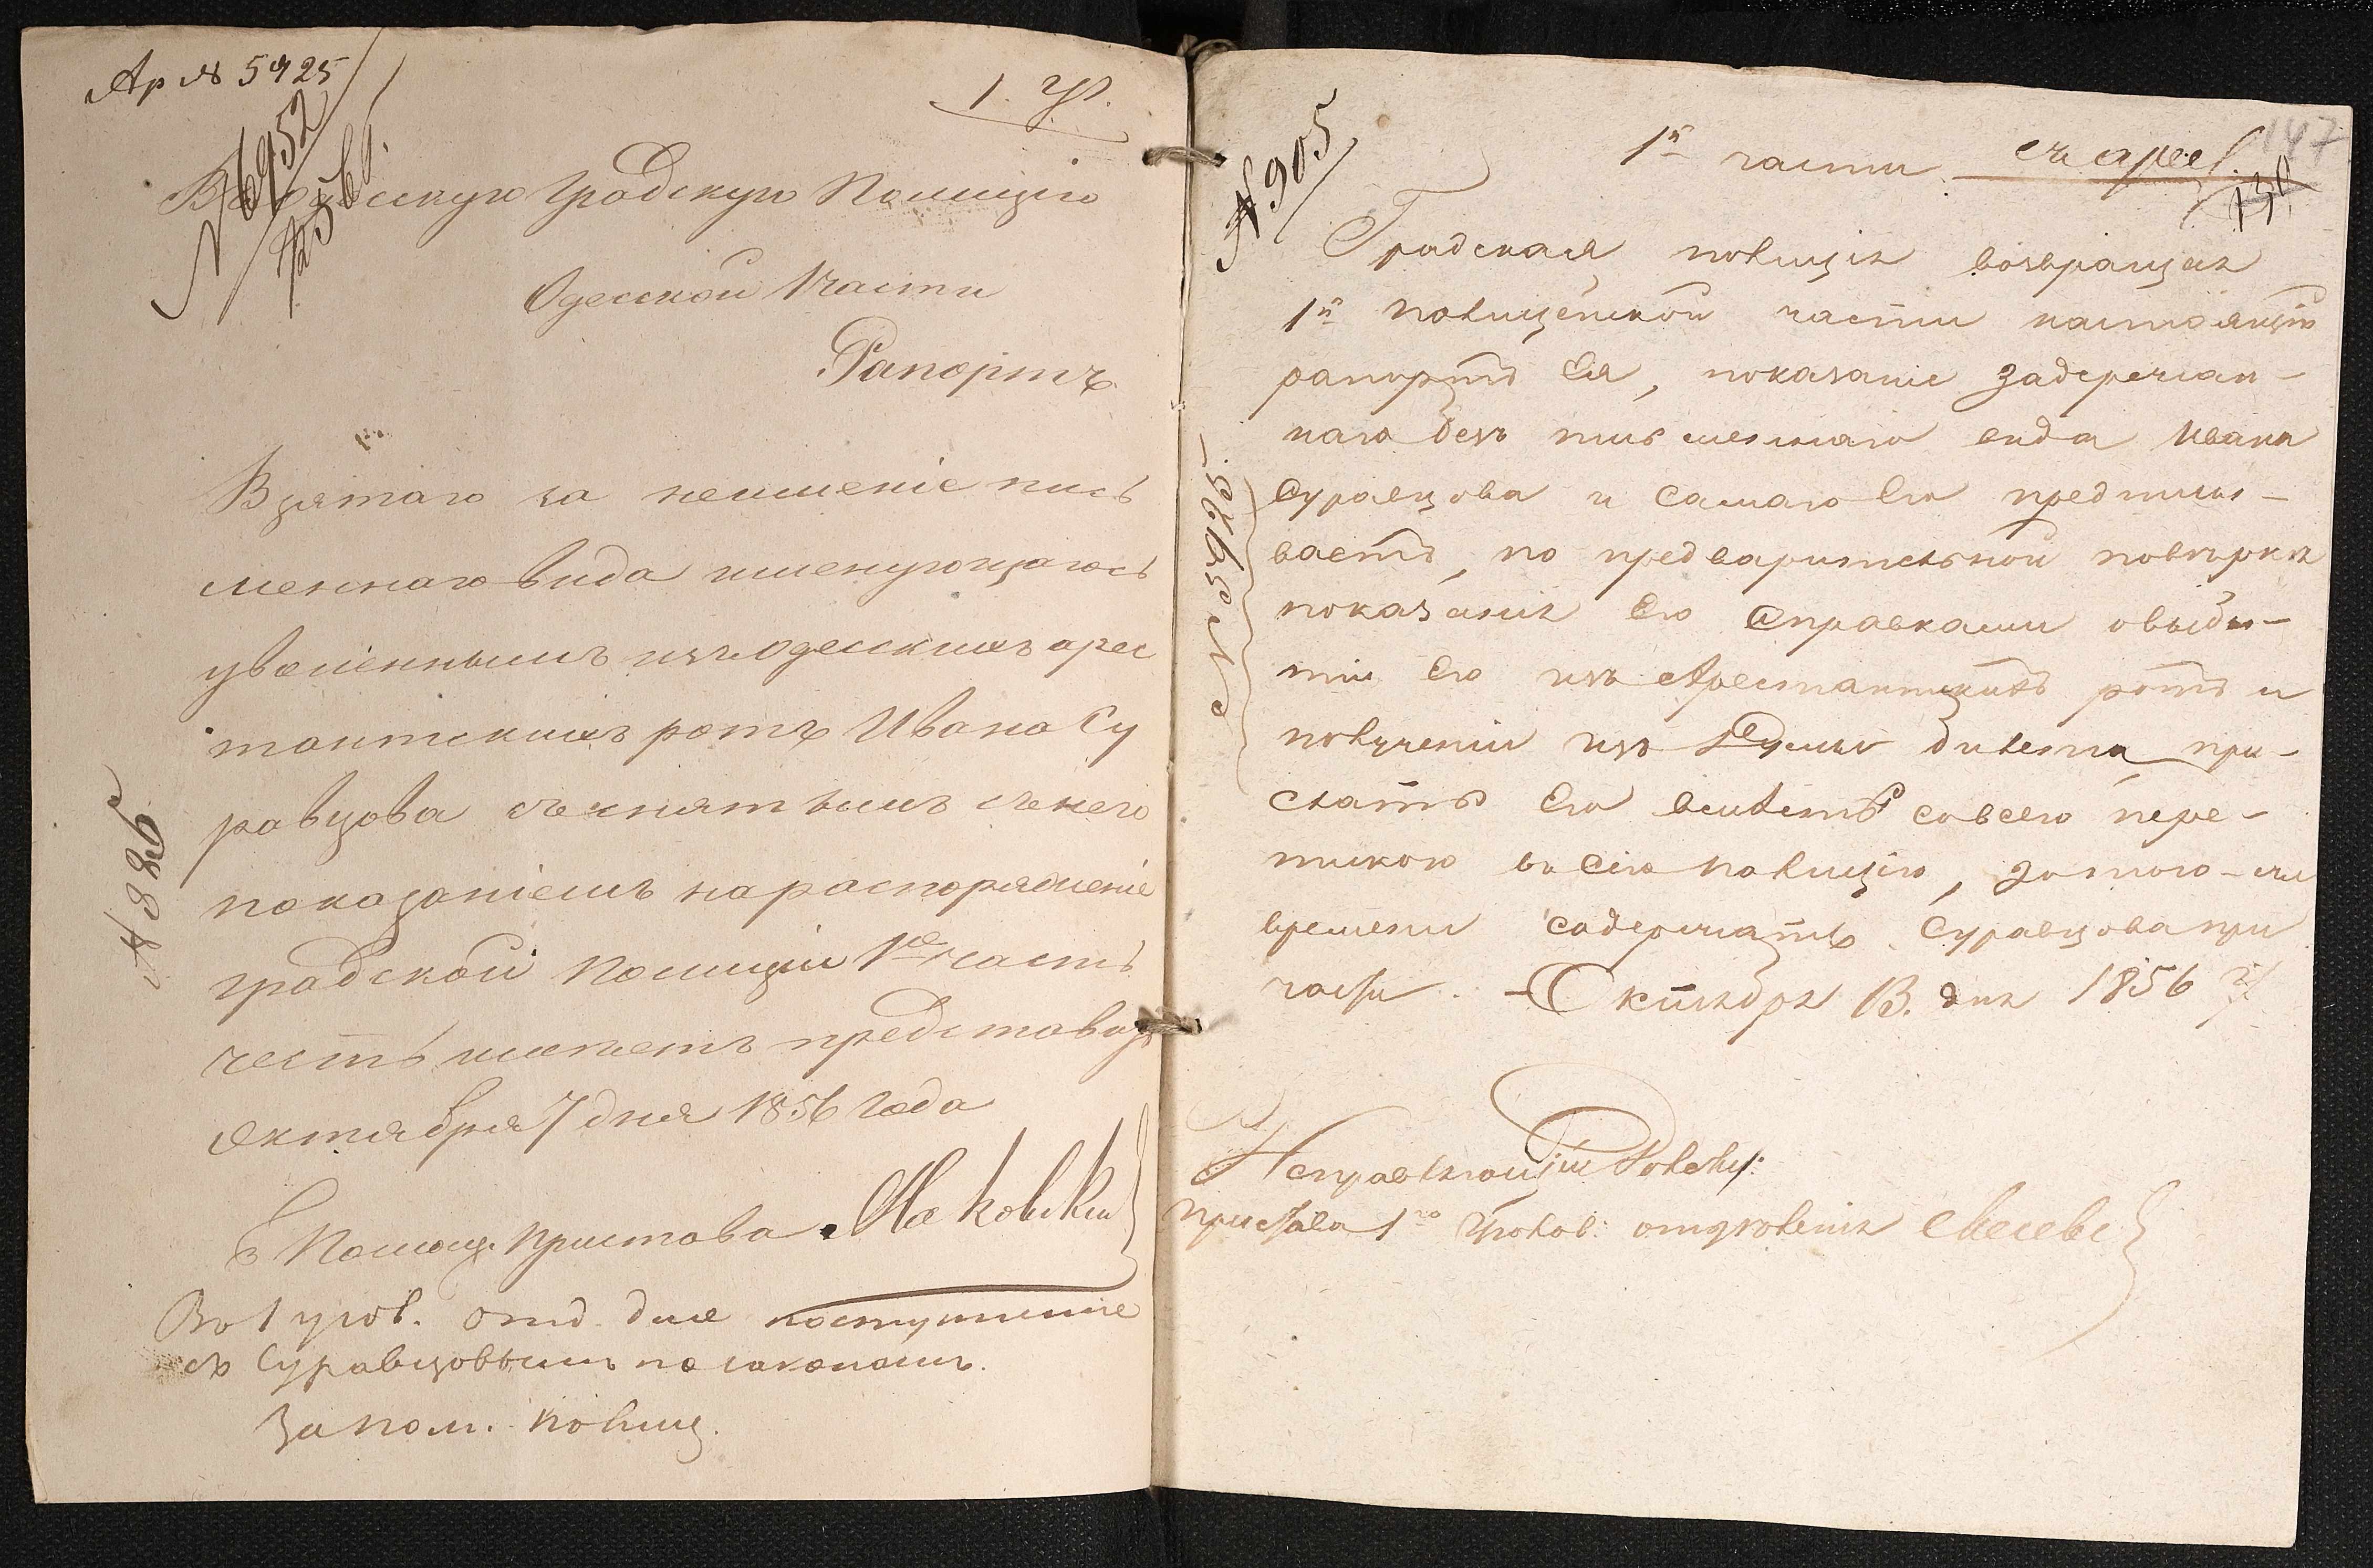 Ар № 5925
№ 6952
1. У.
В Одесскую Градскую Полицію
Одесской 1 части
Рапортъ
Взятаго за неимѣніе пись
меннаго вида именующагось
уволеннымъ изъ Одесскихъ арес
тантскихъ ротъ Ивана Су
равцова съ снятымъ съ него
показаніемъ на распоряженіе
градской Полиціи 1ая часть
честь имѣетъ представить
Октября 7 дня 1856 года
Помощ. Пристава Маковскій
Во 1 угол. отд. для поступленія
съ Суравцовымъ по законамъ.
За пол. Полиц.
№ 886
№ 905
1й части съ арес.
147
Градская полиція возвращая
1й полицейской части настоящій
рапортъ ея, показаніе задержан-
наго безъ письменнаго вида Ивана
Суравцова и самаго его предписы-
ваетъ, по предварительной повѣркѣ
показанія его справками о выбы-
тіи его изъ Арестантскихъ ротъ и
полученіи изъ Думы билета, при-
слать его вмѣстѣ со всею пере-
пискою въ сію полицію, до того-же
времени содержать Суравцова при
части. Октября 13. дня 1856 г.
Исправляющій Должн:
Пристава 1го Уголов: отдѣленія
№ 5925.